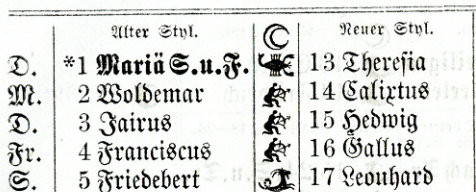 Alter Styl. Neuer Styl.
D. *1 Mariä S.u.F. 13 Theresia
M. 2 Woldemar 14 Calixtus
D. 3 Jairus 15 Hedwig
Fr. 4 Franciscus 16 Gallus
S. 5 Friedebert 17 Leonhard